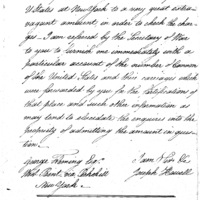 U States at New York to a any great extra-
vagant amount in order to check the char-
ges. I am directed by the Secretary of War
to you to furnish me immediately with a
particular account of the number of Cannon
of the United States and their carriages which
were forwarded by you for the fortifications of
that place and such other information as
may tend to elucidate the enquiries into the
propriety of admitting the amount in ques-
tion.
I am Sir &c.
George Fleming Esq.
Joseph Howell
New York